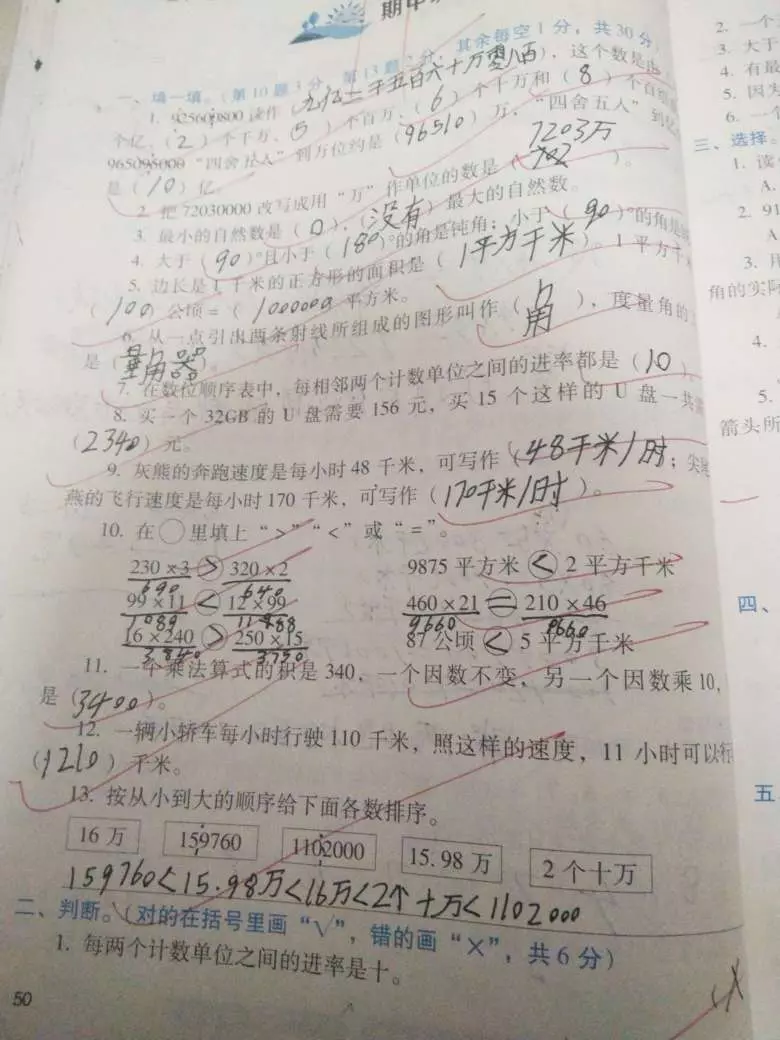 期中
一、填一填。(第10题3分,第13题2分,其余每空1分,共30分)
1. 925600800读作(九亿二千五百六十万零八百),这个数是由
个亿、(2)个千万、(5)个百万、(6)个十万和(8)个百组成
965095000“四舍五入”到万位约是(96510)万,“四舍五入”到亿
是(10)亿。
7203万
2. 把72030000改写成用“万”作单位的数是(702)。
3. 最小的自然数是(0),(没有)最大的自然数。
4. 大于(90)°且小于(180)°的角是钝角;小于(90)°的角是锐
5. 边长是1千米的正方形的面积是(1平方千米)。1平方千米
(100)公顷=(1000000)平方米。
6. 从一点引出两条射线所组成的图形叫作(角),度量角的
是(量角器)。
7. 在数位顺序表中,每相邻两个计数单位之间的进率都是(10)。
8. 买一个32GB的U盘需要156元,买15个这样的U盘一共需
(2340)元。
9. 灰熊的奔跑速度是每小时48千米,可写作(48千米/时;尖尾
燕的飞行速度是每小时170千米,可写作(170千米/时)。
10. 在○里填上“>”“<”或“=”。
230×3 > 320×2 9875平方米 < 2平方千米
690 640
99×11 < 12×99 460×21 = 210×46
1089 1188 9660 9660
16×240 > 250×15 87公顷 < 5平方千米
3840 3750
11. 一个乘法算式的积是340,一个因数不变,另一个因数乘10,
是(3400)。
12. 一辆小轿车每小时行驶110千米,照这样的速度,11小时可以行
(1210)千米。
13. 按从小到大的顺序给下面各数排序。
16万 159760 1102000 15.98万 2个十万
159760<15.98万<16万<2个十万<1102000
二、判断。(对的在括号里画“√”,错的画“×”,共6分)
1. 每两个计数单位之间的进率是十。
×
50
2. 一个
3. 大于
4. 有最
5. 因为
6. 一个
三、选择。
1. 读
A.
2. 91
A
3. 用
角的实际
4.
5.
箭头所
四、
五